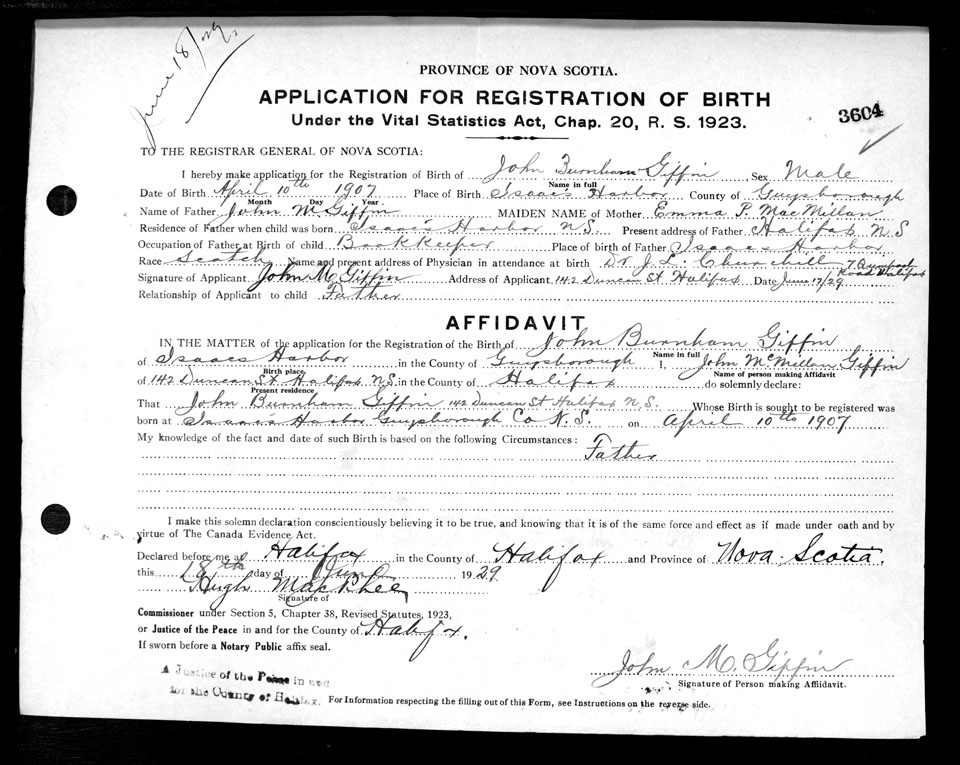 June 18/29
PROVINCE OF NOVA SCOTIA.
APPLICATION FOR REGISTRATION OF BIRTH
Under the Vital Statistics Act, Chap. 20, R. S. 1923.
3604
TO THE REGISTRAR GENERAL OF NOVA SCOTIA:
I hereby make application for the Registration of Birth of John Burnham Giffin Sex Male
Name in full
Date of Birth April 10th 1907 Place of Birth Isaacs Harbor County of Guysborough
Month Day Year.
Name of Father John M Giffin MAIDEN NAME of Mother Emma P. MacMillan
Residence of Father when child was born Isaac's Harbor N.S. Present address of Father Halifax N S
Occupation of Father at Birth of child Bookkeeper Place of birth of Father Isaacs Harbor
Race Scotch Name and present address of Physician in attendance at birth Dr. J. L. Churchill 7 Road Halifax
Signature of Applicant John M Giffin Address of Applicant 142 Duncan St Halifax Date June 17/29
Relationship of Applicant to child Father
AFFIDAVIT
IN THE MATTER of the application for the Registration of the Birth of John Burnham Giffin
Name in full
of Isaacs Harbor in the County of Guysborough I, John McMillan Giffin
Birth place Name of person making Affidavit
of 142 Duncan St Halifax N.S. in the County of Halifax do solemnly declare:
Present residence
That John Burnham Giffin 142 Duncan St Halifax N.S. Whose Birth is sought to be registered was
born at Isaacs Harbor Guysborough Co N.S. on April 10th 1907
My knowledge of the fact and date of such Birth is based on the following Circumstances: Father
I make this solemn declaration conscientiously believing it to be true, and knowing that it is of the same force and effect as if made under oath and by
virtue of The Canada Evidence Act.
Declared before me at Halifax in the County of Halifax and Province of Nova Scotia.
this 18th day of June 1929
Hugh MacPhee
Signature of
Commissioner under Section 5, Chapter 38, Revised Statutes, 1923,
or Justice of the Peace in and for the County of Halifax.
If sworn before a Notary Public affix seal.
John M. Giffin
Signature of Person making Affidavit.
A Justice of the Peace in and
for the County of Halifax.
For Information respecting the filling out of this Form, see Instructions on the reverse side.